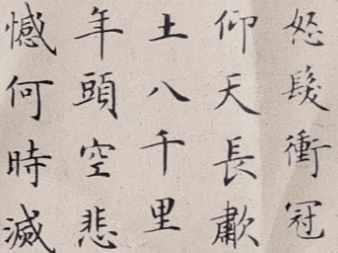 怒髮衝冠
仰天長歗
土八千里
年頭空悲
憾何時滅